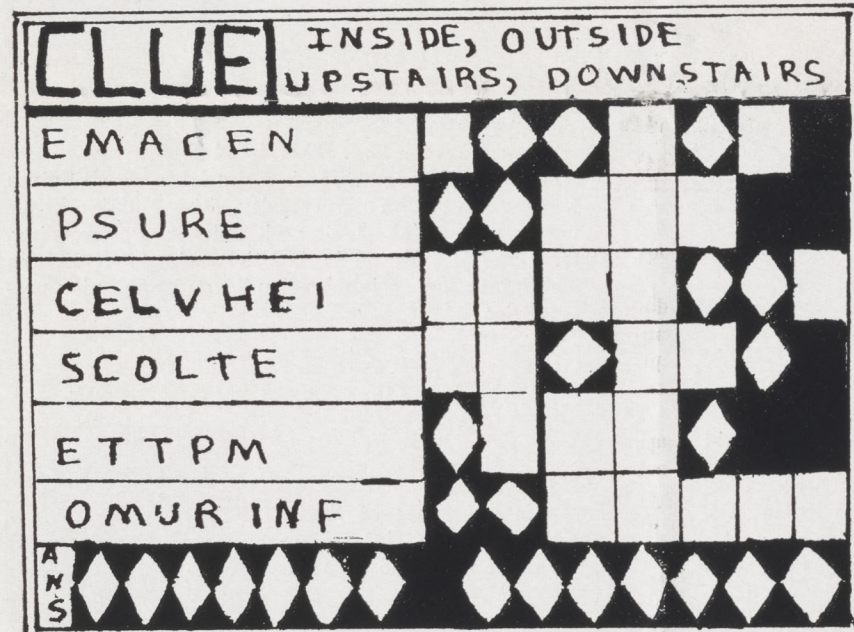 CLUE
INSIDE, OUTSIDE
UPSTAIRS, DOWNSTAIRS
EMACEN
PSURE
CELVHEI
SCOLTE
ETTPM
OMURINF
ANS